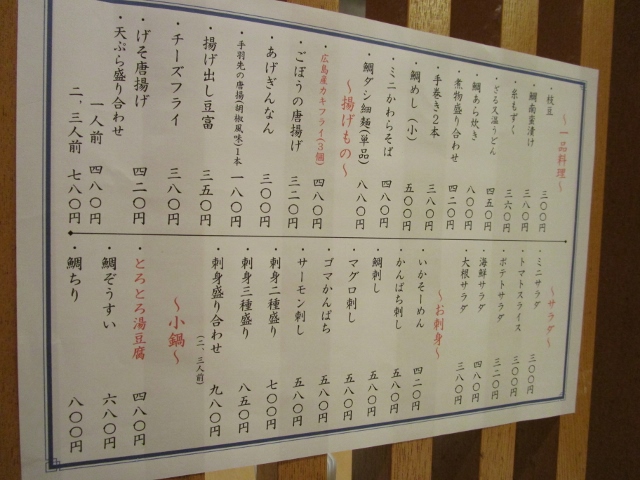 ～一品料理～
・枝豆 三〇〇円
・鯛南蛮漬け 三八〇円
・糸もずく 三六〇円
・ざる又温うどん 四五〇円
・鯛あら炊き 八〇〇円
・煮物盛り合わせ 四二〇円
・手巻き2本 三八〇円
・鯛めし（小） 五〇〇円
・ミニかわらそば 四八〇円
・鯛ダシ細麺(単品) 八八〇円
～揚げもの～
・広島産カキフライ(3個) 四八〇円
・ごぼうの唐揚げ 三二〇円
・あげぎんなん 三〇〇円
・手羽先の唐揚(胡椒風味)1本 一八〇円
・揚げ出し豆富 三五〇円
・チーズフライ 三八〇円
・げそ唐揚げ 四二〇円
・天ぷら盛り合わせ
一人前 四八〇円
二、三人前 七八〇円
～サラダ～
・ミニサラダ 三〇〇円
・トマトスライス 三〇〇円
・ポテトサラダ 三二〇円
・海鮮サラダ 四八〇円
・大根サラダ 三八〇円
～お刺身～
・いかそーめん 四二〇円
・かんぱち刺し 五八〇円
・鯛刺し 五八〇円
・マグロ刺し 五八〇円
・ゴマかんぱち 五八〇円
・サーモン刺し 五八〇円
・刺身二種盛り 七〇〇円
・刺身三種盛り 八五〇円
・刺身盛り合わせ 九八〇円
(二、三人前)
～小鍋～
・とろとろ湯豆腐 四八〇円
・鯛ぞうすい 六八〇円
・鯛ちり 八〇〇円